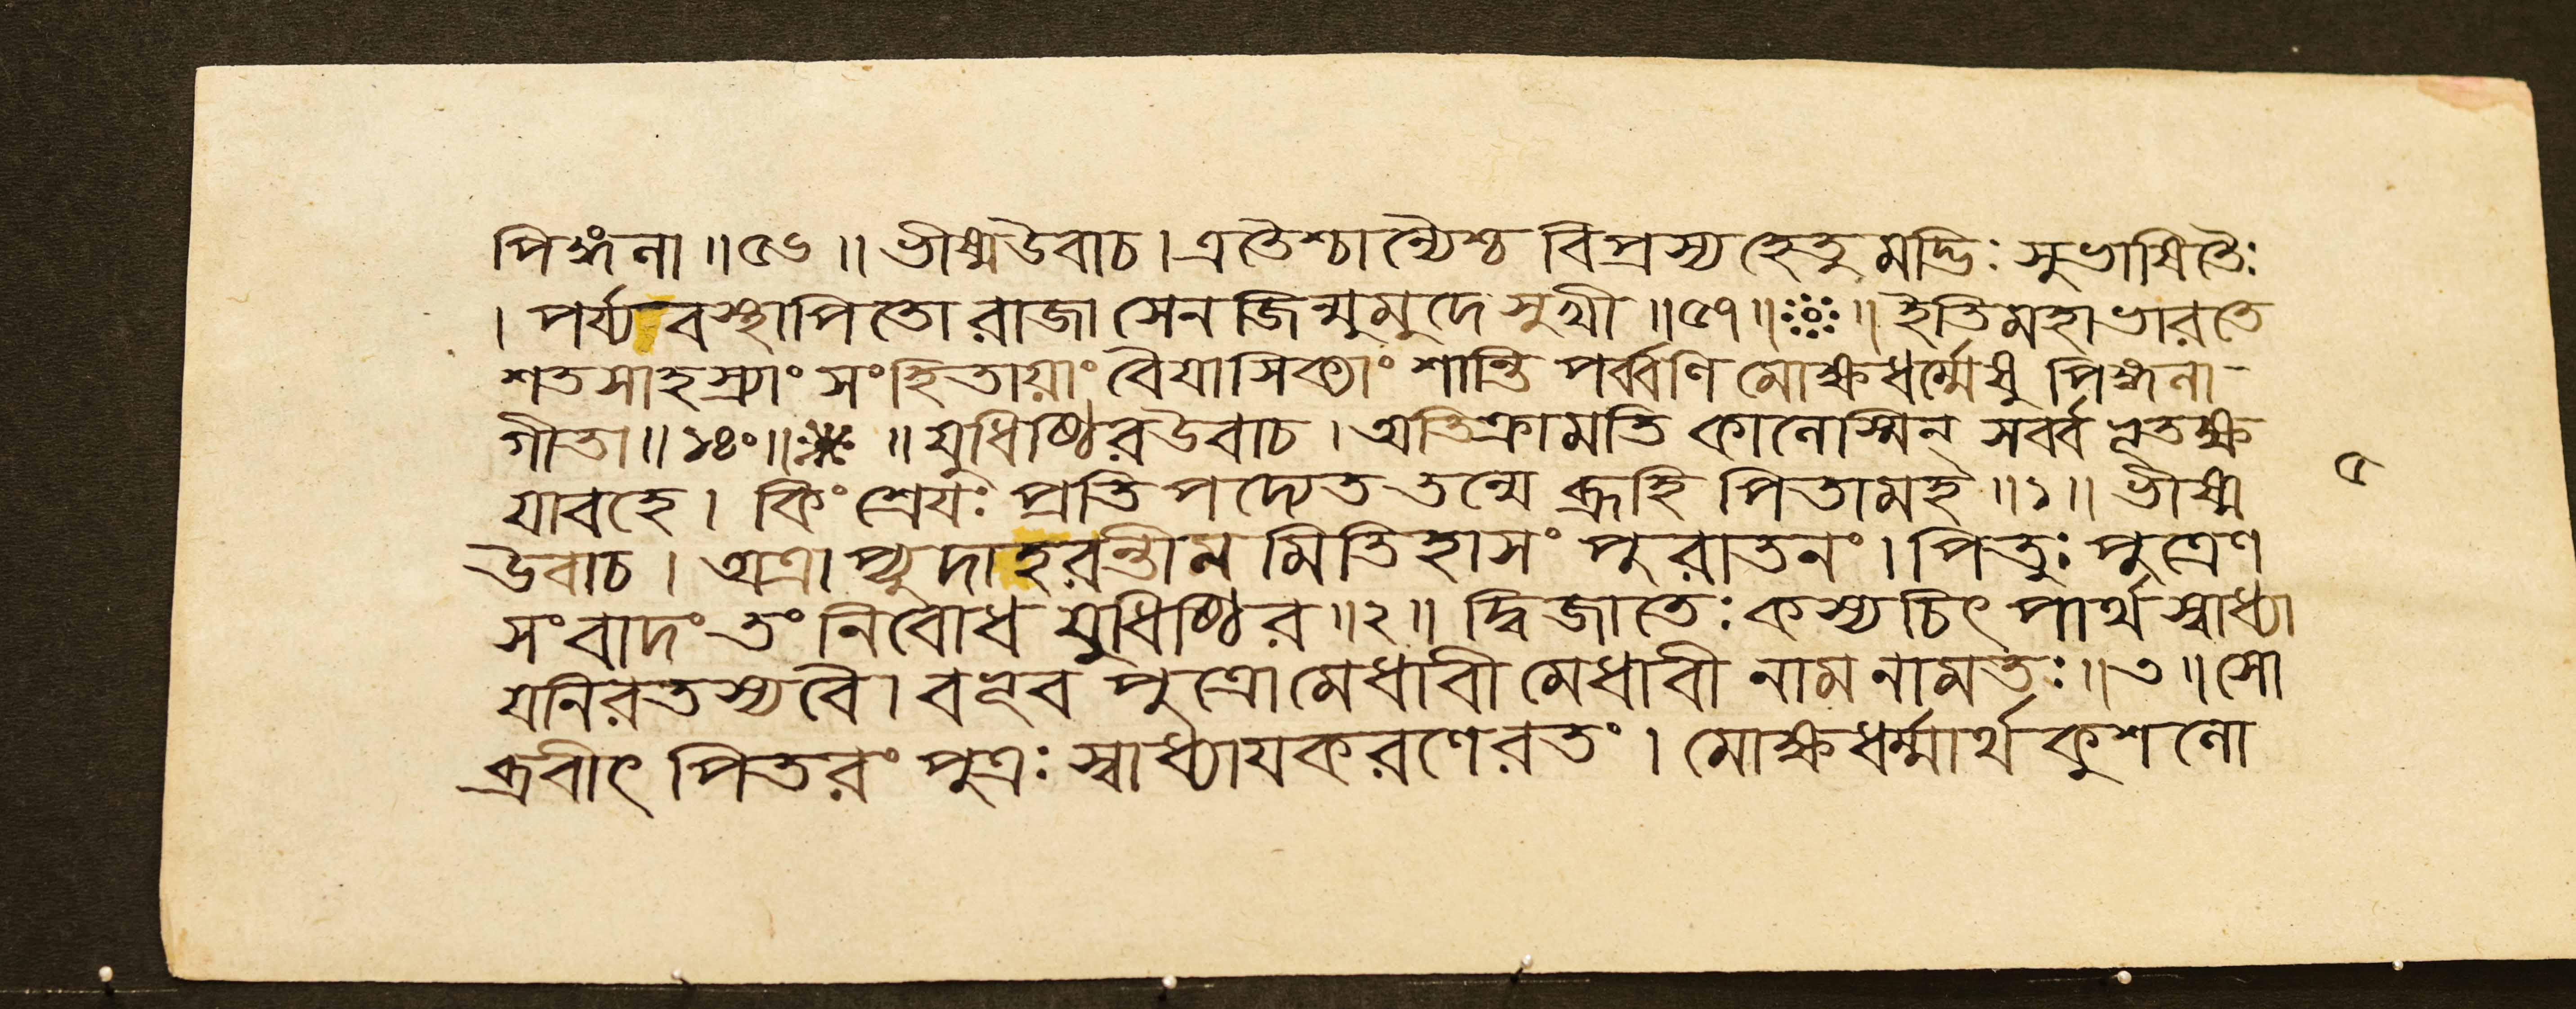 পিঙ্গলা ॥ ৫৬ ॥ ভীষ্মউবাচ । এতৈশ্চান্যৈশ্চ বিপ্রস্য হেতুমদ্ভিঃ সুভাষিতৈঃ
। পর্য্যবস্থাপিতো রাজা সেনজিন্মুমুদে সুখী ॥ ৫৭ ॥ ॥ ইতিমহাভারতে
শতসাহস্র্যাং সংহিতায়াং বৈয়াসিক্যাং শান্তিপর্ব্বণি মোক্ষধর্ম্মেষু পিঙ্গলা-
গীতা ॥ ১৪॰ ॥ ॥ যুধিষ্ঠিরউবাচ । অতিক্রামতি কালেস্মিন্ সর্ব্বভূতক্ষ
যাবহে । কিং শ্রেযঃ প্রতিপদ্যেত তন্মে ব্রূহি পিতামহ ॥ ১ ॥ ভীষ্ম
৫
উবাচ । অত্রাপ্যুদাহরন্তীম মিতিহাসং পুরাতনং । পিতুঃ পুত্রেণ
সংবাদং তং নিবোধ যুধিষ্ঠির ॥ ২ ॥ দ্বিজাতেঃ কস্যচিৎ পার্থ স্বাধ্যা
যনিরতস্য বৈ । বভূব পুত্রো মেধাবী মেধাবী নাম নামতঃ ॥ ৩ ॥ সো
ব্রবীৎ পিতরং পুত্রঃ স্বাধ্যাযকরণেরতং । মোক্ষধর্ম্মার্থকুশলো